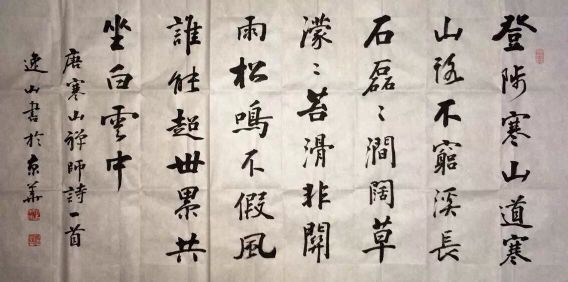 登陟寒山道寒
山路不窮溪長
石磊〻澗闊草
濛〻苔滑非關
雨松鳴不假風
誰能超世累共
坐白雲中
唐寒山禅師詩一首
逸山書於京華